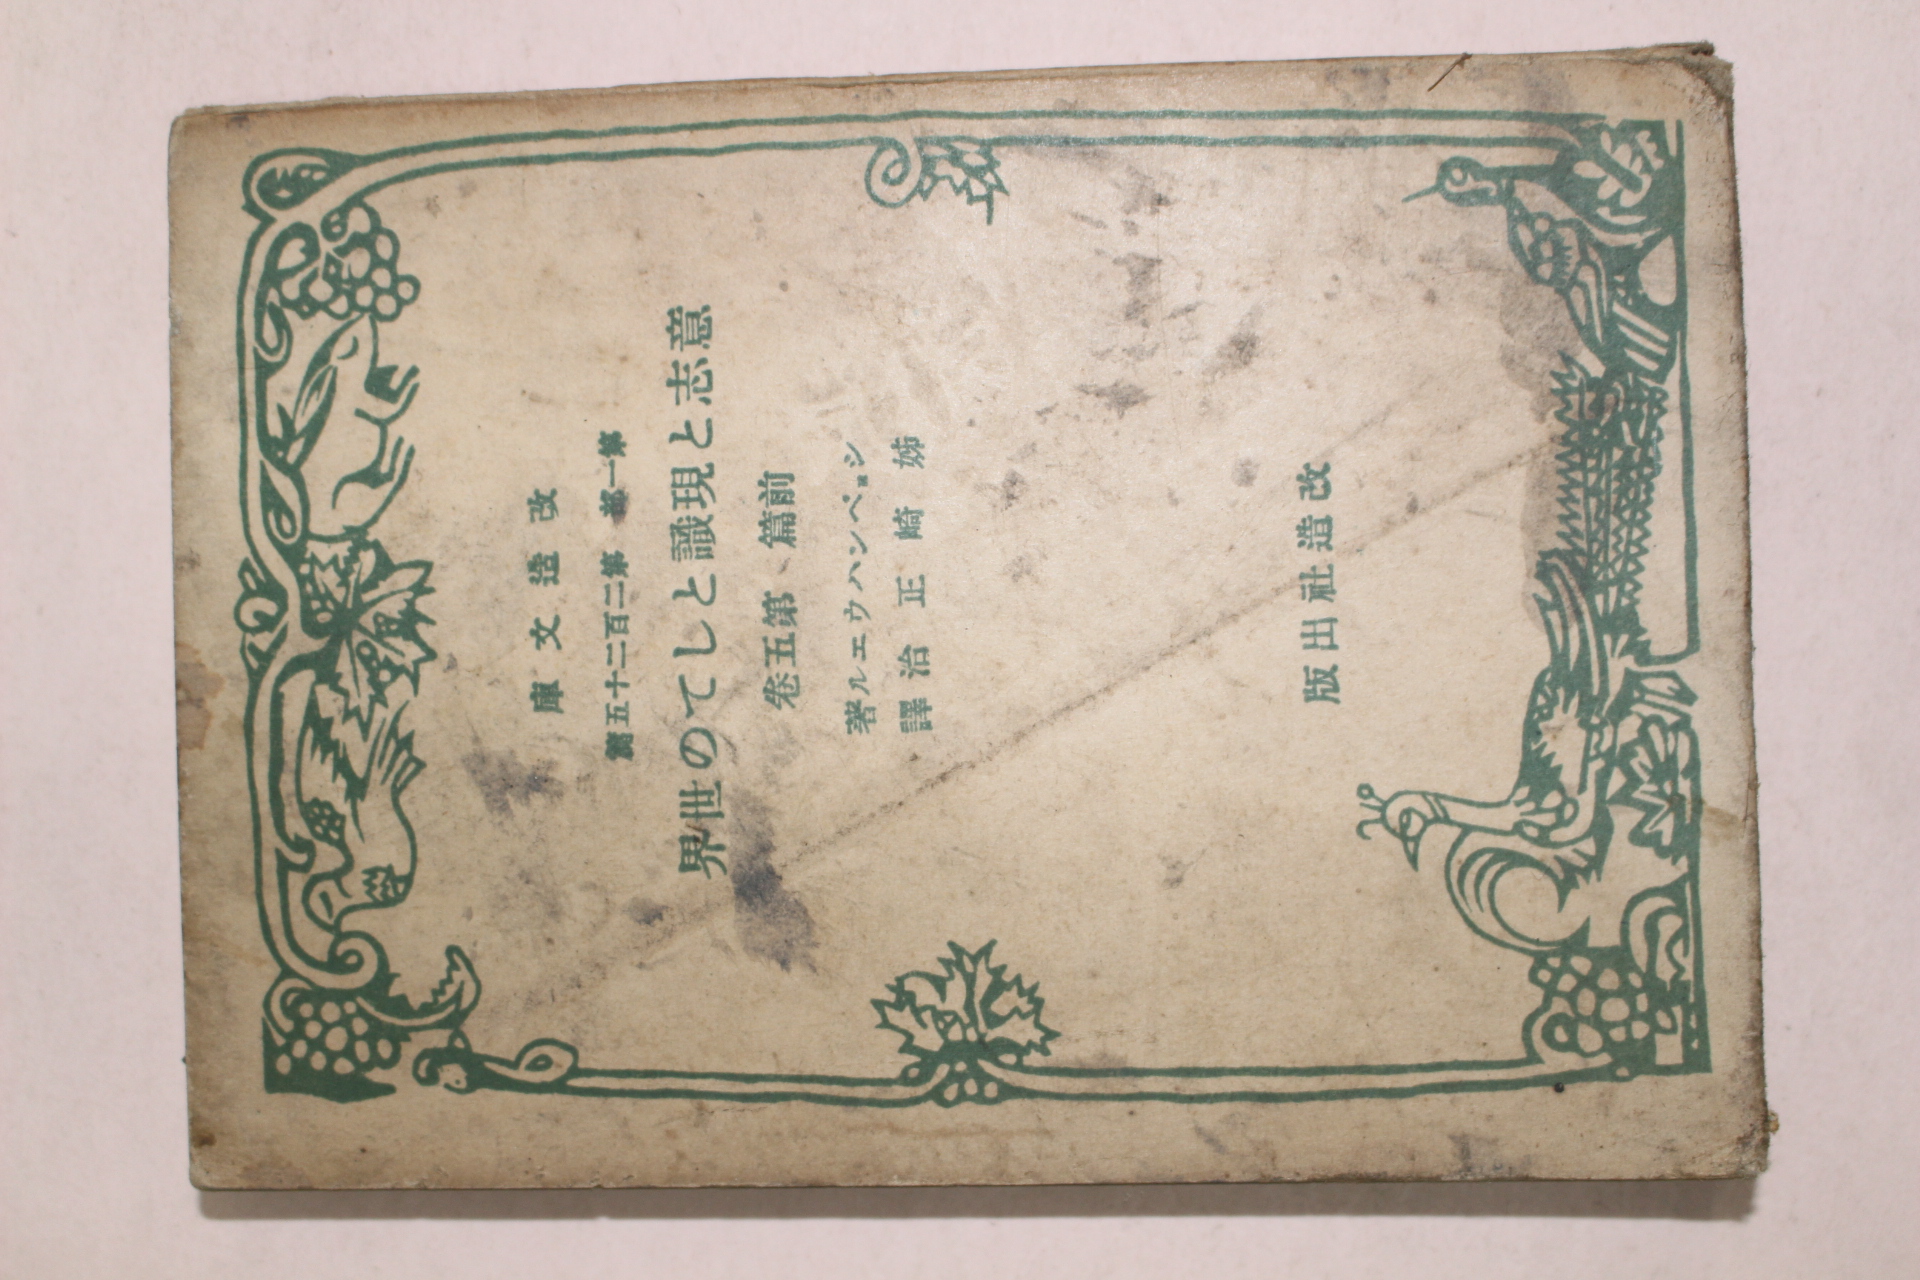 改造文庫
第一部 第二百二十五篇
意志と現識としての世界
前篇、第五卷
ショペンハウエル著
姊崎正治譯
改造社出版